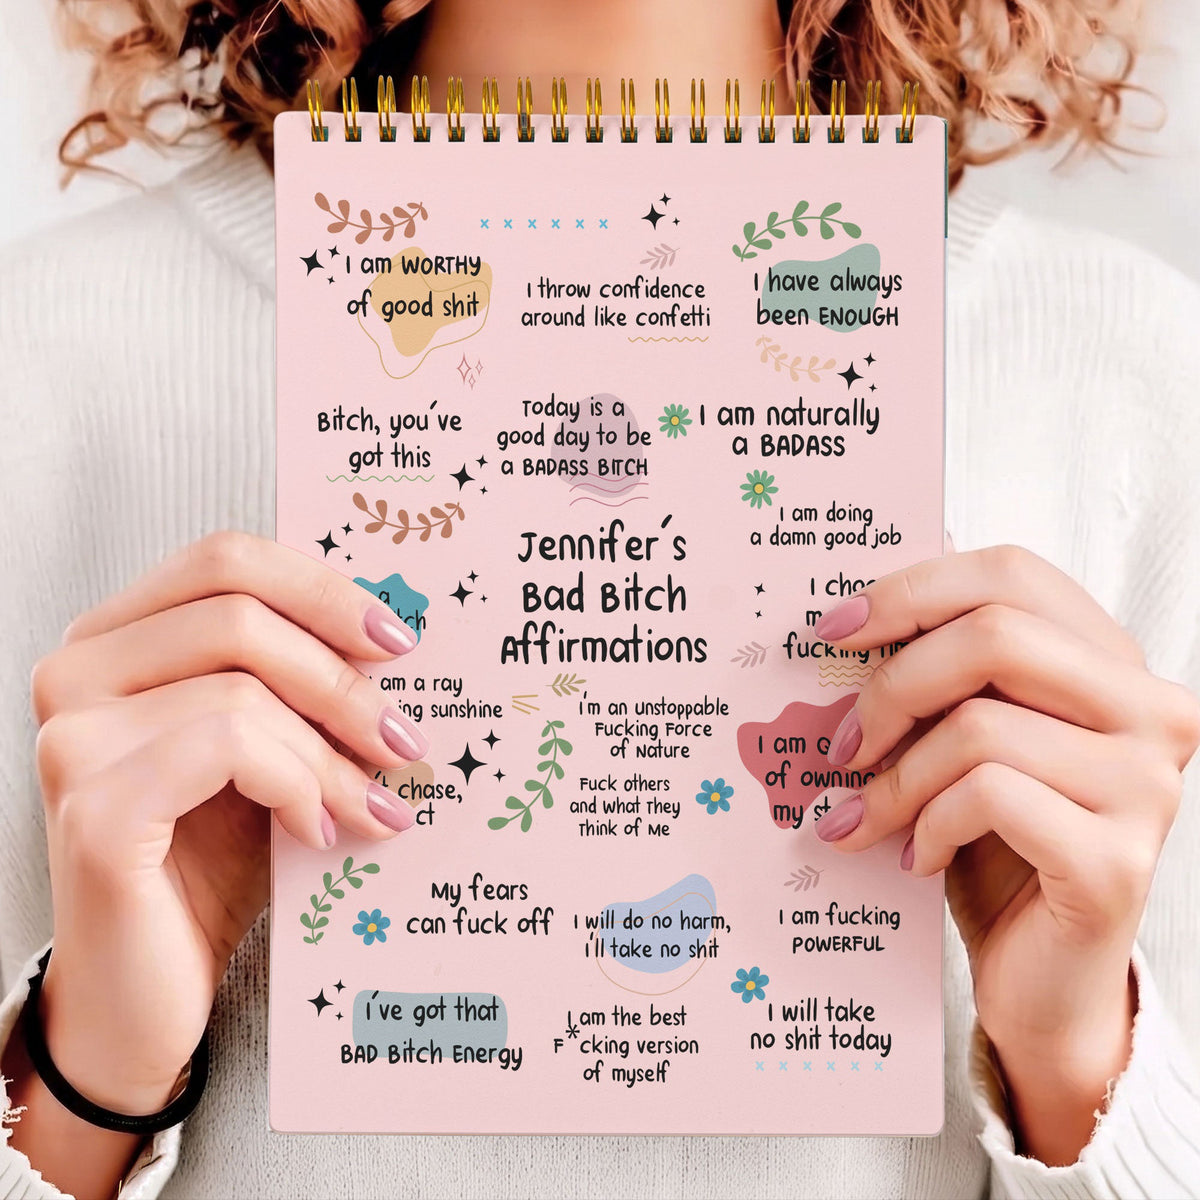 I am WORTHY
of good shit
I throw confidence
around like confetti
I have always
been ENOUGH
Bitch, you've
got this
Today is a
good day to be
a BADASS BITCH
I am naturally
a BADASS
I am doing
a damn good job
Jennifer's
Bad Bitch
Affirmations
a
I
fucking
am a ray
sunshine
I'm an unstoppable
Fucking Force
of Nature
I am
of owning
my
chase,
Fuck others
and what They
Think of Me
My fears
can fuck off
I will do no harm,
I'll take no shit
I am fucking
POWERFUL
I've got that
BAD Bitch Energy
I am the best
F*cking version
of myself
I will take
no shit today